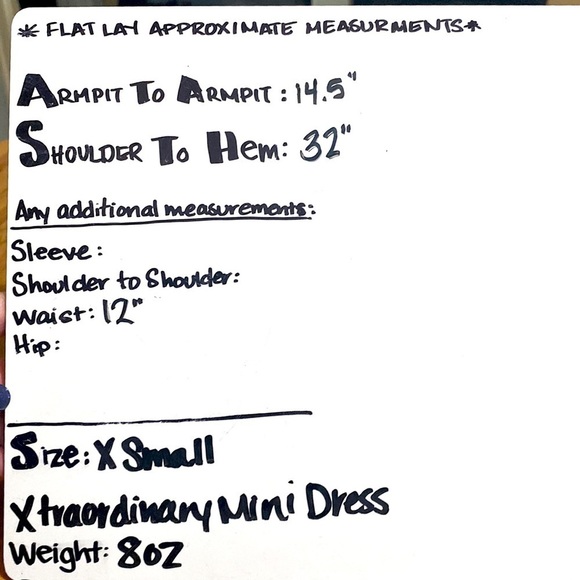 * FLAT LAY APPROXIMATE MEASURMENTS*
ARMPIT TO ARMPIT: 14.5"
SHOULDER TO HEM: 32"
Any additional measurements:
Sleeve:
Shoulder to Shoulder:
Waist: 12"
Hip:
Size: X Small
Xtraordinary Mini Dress
Weight: 8oz